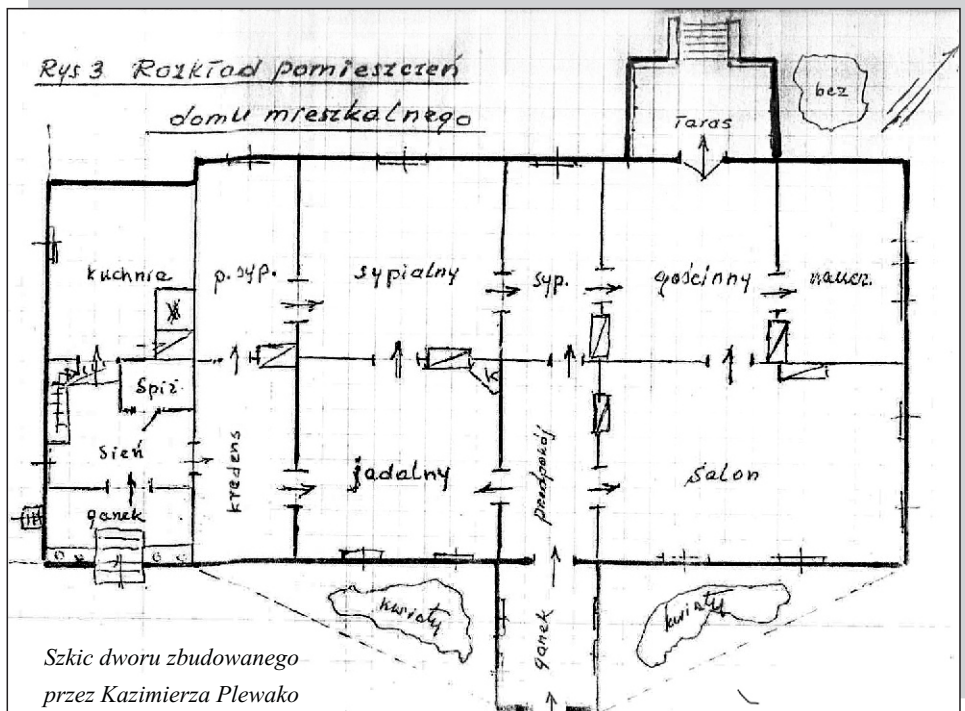 Rys 3 Rozkład pomieszczeń
domu mieszkalnego
bez
Taras
kuchnia
p. syp.
sypialny
syp.
gościnny
naucz.
Spiż.
K
sień
kredens
jadalny
przedpokój
salon
ganek
kwiaty
ganek
kwiaty
Szkic dworu zbudowanego
przez Kazimierza Plewako